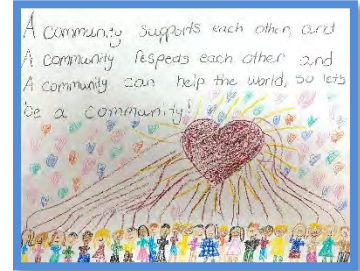 A community supports each other, and
A community respeds each other and
A community can help the world, so lets
be a community!